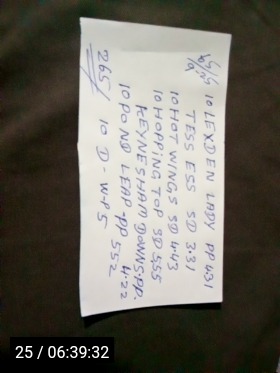 10 LEXDEN LADY PP 4.31
TESS ESS SD 3.31
10 HOT WINGS SD 4.43
10 HOPPING TOP SD 5.55
KEYNESHAM DOWNS-PP.
10 POND LEAP-PP 4.22
552
265/ 10 D-W-P-5
25 / 06:39:32